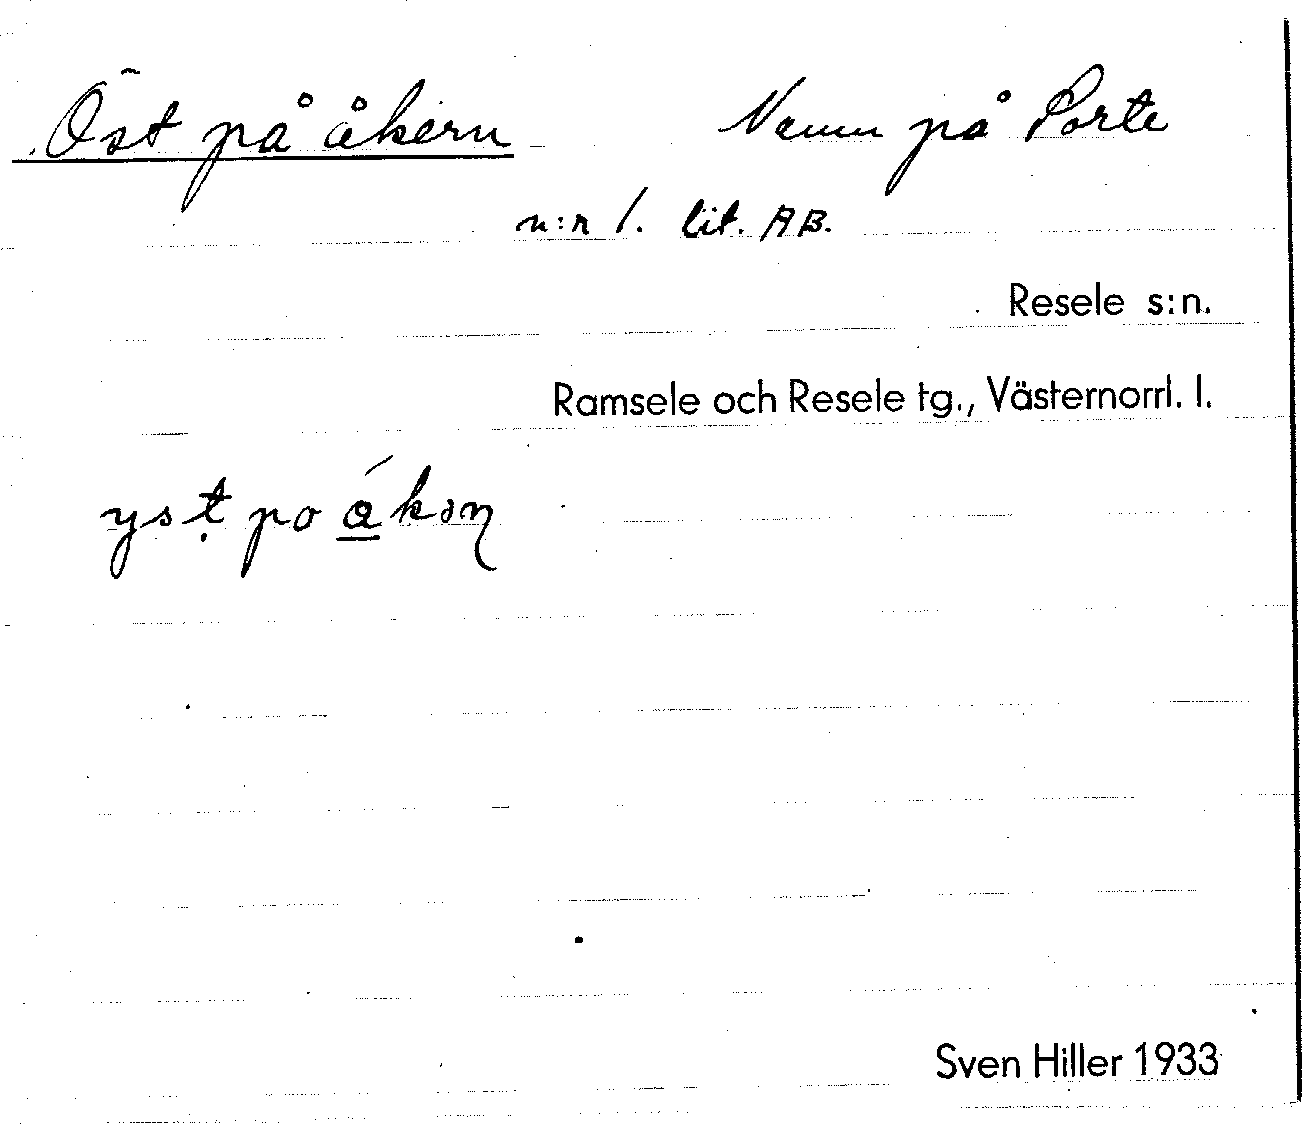 Öst på åkern Namn på Porte
n:r 1. lit. AB.
Resele s:n.
Ramsele och Resele tg., Västernorrl. l.
yst po
Sven Hiller 1933